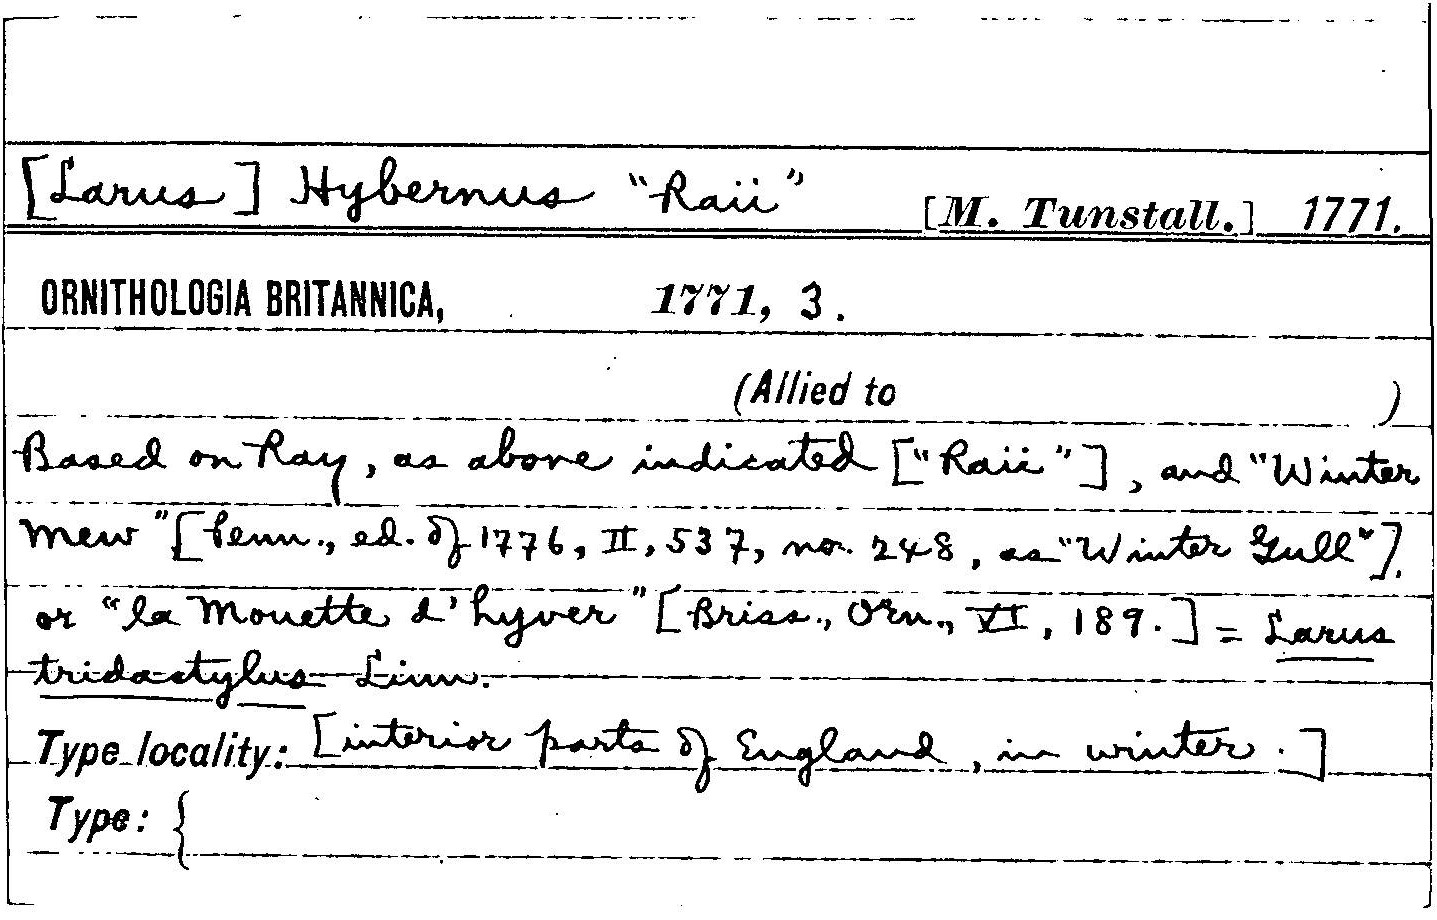 [Larus] Hybernus "Raii" [M. Tunstall.] 1771.
ORNITHOLOGIA BRITANNICA, 1771, 3.
(Allied to )
Based on Ray, as above indicated ["Raii"], and "Winter
Mew" [Penn., ed. of 1776, II, 537, no. 248, as "Winter Gull"].
or "la Mouette d'hyver" [Briss., Orn., VI, 189.] = Larus
tridactylus Linn.
Type locality: [interior parts of England, in winter.]
Type: {